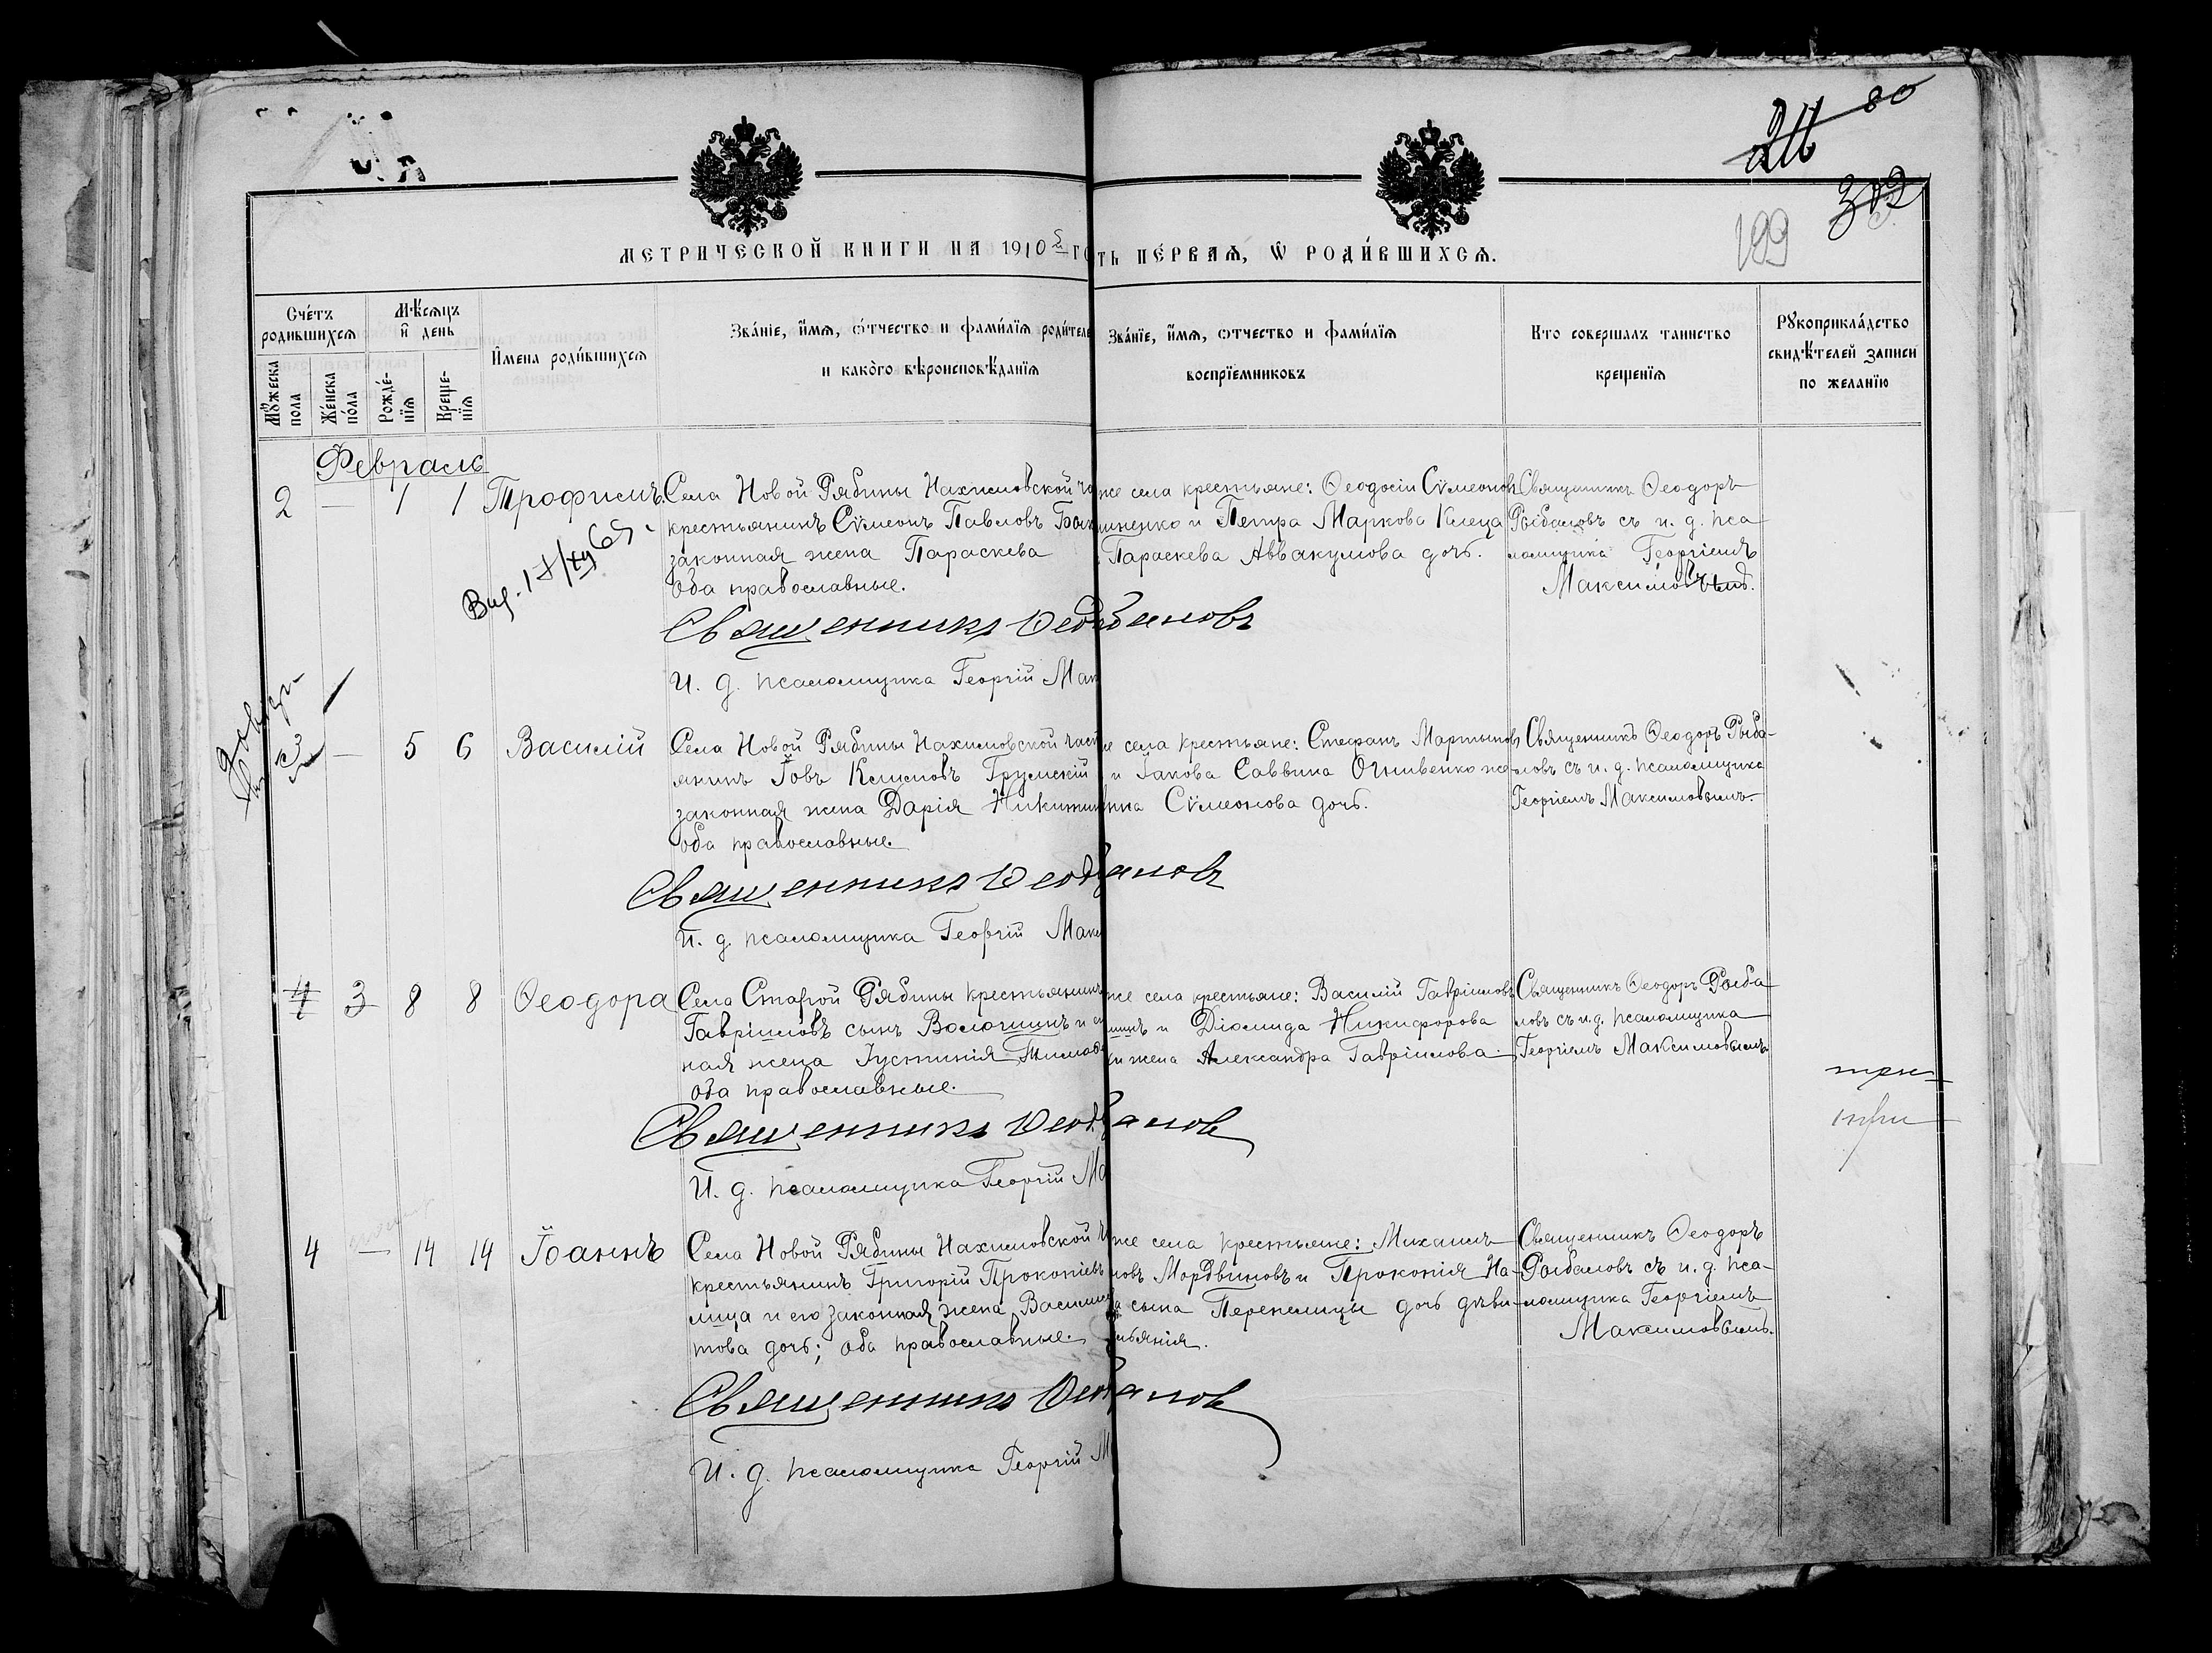 80
211
302
199
МЕТРИЧЕСКОЙ КНИГИ НА 1910 ГО
ТЬ ПЕ́РВАЯ, Ѡ РОДИ́ВШИХСЯ.
Сче́тъ родившихся
Мѣ́сяцъ и҆ день
Мꙋжеска пола
Же́нска по́ла
Рожде́нїя
Креще́нїя
И҆мена роди́вшихся
Зва́нїе, и҆́мя, ѻ҆́тчество и фами́лїя роди́теле
и како́го вѣроисповѣ́данїя
Зва́нїе, и҆́мя, ѻтчество и фами́лїя
воспрїе́мниковъ
Кто совершалъ таинство
креще́нїя
Рꙋкоприкла́дство
свидѣ́телей записи
по желанїю
Февраль
2 — 1 1 Трофимъ.
Села Новой Рябины Нахимовской ча
крестьянинъ Сѵмеонъ Павловъ
законная жена Параскева
оба православные.
же села крестьяне: Ѳеодосій Сѵмеонов
и Петра Маркова Клеца
Параскева Аввакумова дочь.
Священникъ Ѳеодоръ
Рыбаловъ съ и. д. пса
ломщика Георгіемъ
Максимовымъ.
Священникъ
И. д. псаломщика Георгій Мак
3 — 5 6 Василій
Села Новой Рябины Нахимовской част
янинъ Іовъ Климовъ Грумскій
законная жена Дарія Никитин
оба православные.
е села крестьяне: Стефанъ Мартынов
и Іакова Саввина Огнивенко же
на Сѵмеонова дочь.
Священникъ Ѳеодоръ Рыба-
ловъ съ и. д. псаломщика
Георгіемъ Максимовымъ.
Священникъ
И. д. псаломщика Георгій Макс
4 3 8 8 Ѳеодора
Села Старой Рябины крестьянинъ
Гавріиловъ сынъ Волошинъ и
ная жена Іустинія Тимоѳ
оба православные.
же села крестьяне: Василій Гавріиловъ
шинъ и Діомида Никифорова
жена Александра Гавріилова
Священникъ Ѳеодоръ Рыба
ловъ съ и. д. псаломщика
Георгіемъ Максимовымъ
три
три
Священникъ
И. д. псаломщика Георгій Ма
4 — 14 14 Іоаннъ
Села Новой Рябины Нахимовской ч
крестьянинъ Григорій Прокопіевъ
лица и его законная жена Васили
това дочь; оба православные.
же села крестьяне: Михаилъ
новъ Мордвиновъ и Прокопія На-
сына Перепелицы дочь дѣви-
Священникъ Ѳеодоръ
Рыбаловъ съ и. д. пса-
ломщика Георгіемъ
Максимовымъ.
Священникъ
И. д. псаломщика Георгій М